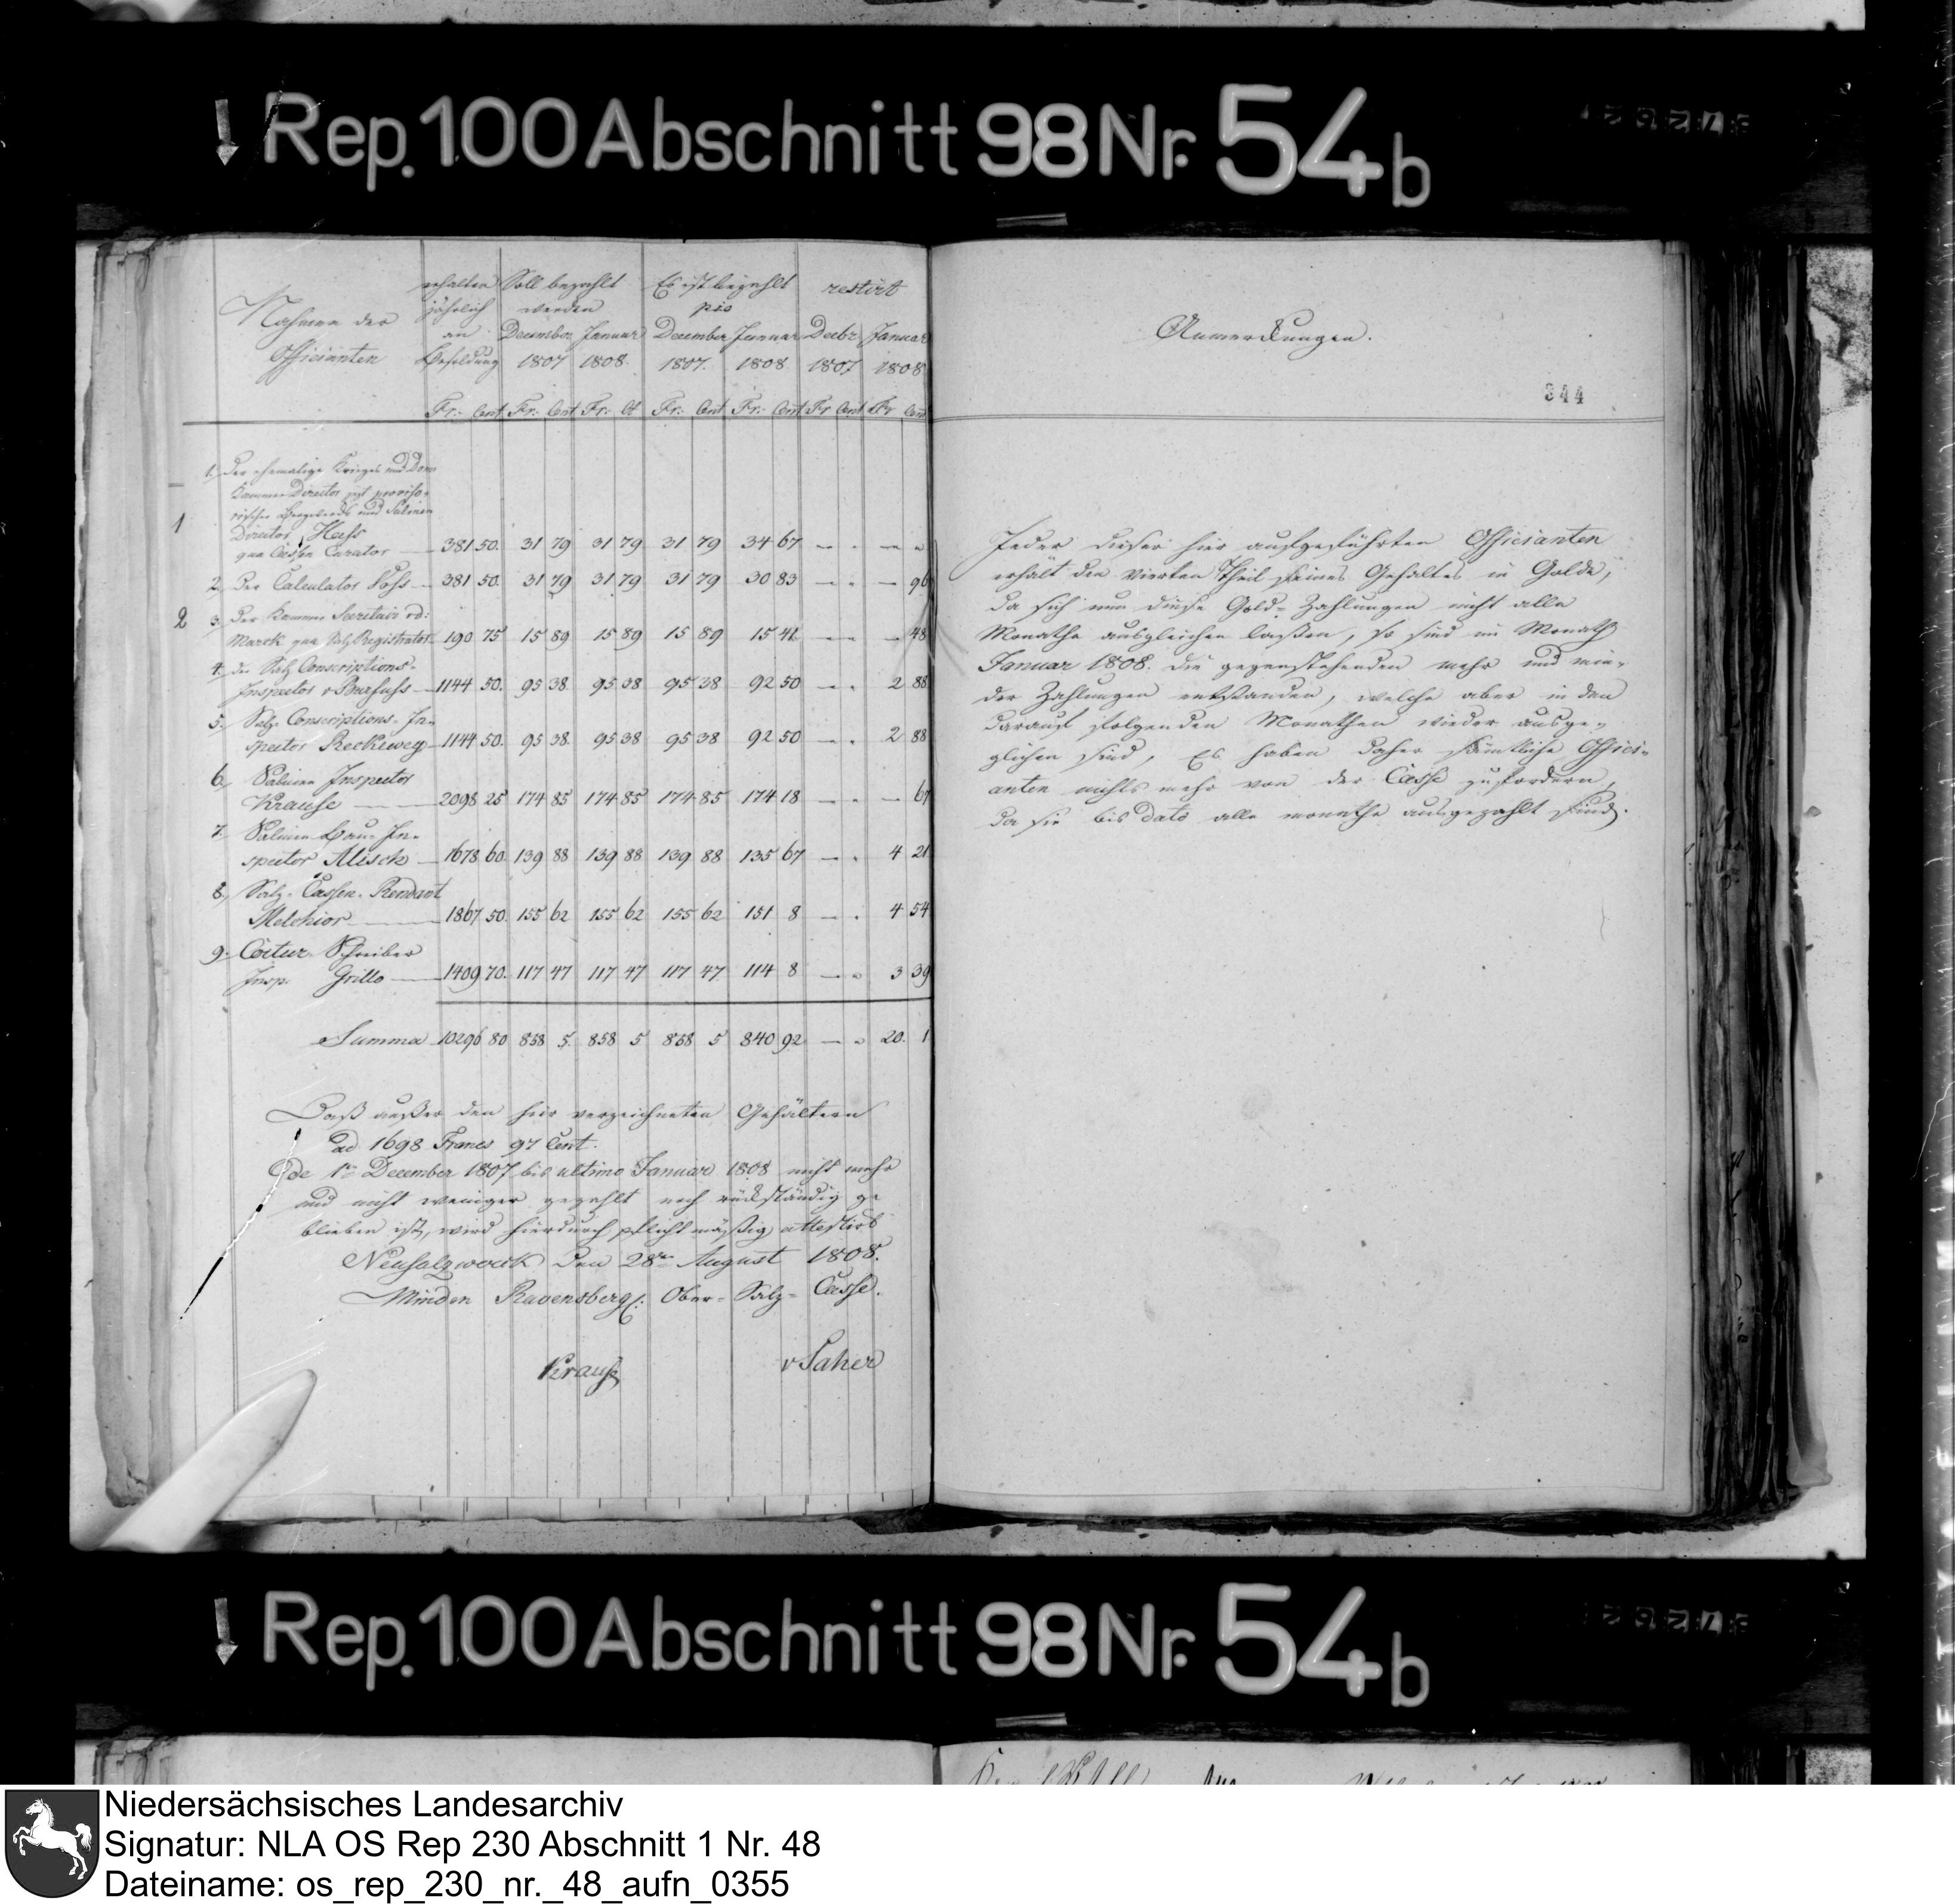 Rep. 100 Abschnitt 98 Nr. 54b
Nahmen der
Officianten
erhalten
jährlich
an
Besoldung
Soll bezahlt
werden
December Januar
1807 1808.
Es ist bezahlt
pro
December Januar
1807. 1808
restirt
Decbr Januar
1807 1808
Fr: Cent Fr: Cent Fr: Ct Fr: Cent Fr: Cent Fr Cent Fr Cent
1. Der ehemalige Krieges und Dom
Kammer Director jezt proviso-
rischer Bergwerks und Salinen
1
Director Hass
qua Cassen Curator 381 50. 31 79 31 79 31 79 34 67
2. Der Calculator Voss 381 50. 31 79 31 79 31 79 30 83 96
2
3. Der Kammer Secretair
Marck qua Salz Registrator 190 75 15 89 15 89 15 89 15 41 48
4. der Salz Conscriptions-
Inspector 1144 50. 95 38. 95 38 95 38 92 50 2 88
5. Salz Conscriptions-In-
spector Reckeweg 1144 50. 95 38. 95 38 95 38 92 50 2 88
6. Salinen Inspector
Krause 2098 25 174 85 174 85 174 85 174 18 67
7. Salinen Bau-In-
spector Alisch 1678 60. 139 88 139 88 139 88 135 67 4 21
8. Salz-Cassen-Rendant
Melchior 1867 50. 155 62 155 62 155 62 151 8 4 54
9. Coctur Schreiber
Insp. Grillo 1409 70. 117 47 117 47 117 47 114 8 3 39
Summa 10296 80 858 5. 858 5 858 5 840 92 20. 1
Daß außer den hier verzeichneten Gehältern
ad 1698 Francs 97 Cent.
de 1ten December 1807 bis ultimo Januar 1808 nicht mehr
und nicht weniger gezahlt noch rückständig ge
blieben ist, wird hierdurch pflichtmäßig attestirt
Neusalzwerck den 28ten August 1808.
Minden Ravensberg: Ober-Salz-Casse.
Krause vSaher
Anmerckungen.
344
Jeder dieser hier aufgeführten Officianten
erhält den vierten Theil seines Gehaltes in Golde,
da sich nun diese Gold-Zahlungen nicht alle
Monathe ausgleichen laßen, so sind im Monath
Januar 1808. die gegenstehenden mehr und min-
der Zahlungen entstanden, welche aber in den
darauf folgenden Monathen wieder ausge-
glichen sind, Es haben daher sämtliche Offici-
anten nichts mehr von der Casse zu fordern,
da sie bis dato alle monathe ausgezahlt sind.
Rep. 100 Abschnitt 98 Nr. 54b
Niedersächsisches Landesarchiv
Signatur: NLA OS Rep 230 Abschnitt 1 Nr. 48
Dateiname: os_rep_230_nr._48_aufn_0355